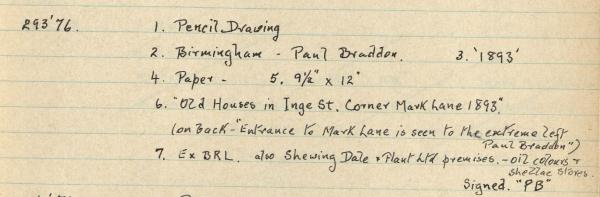 293'76. 1. Pencil Drawing
2. Birmingham - Paul Braddon. 3. '1893'
4. Paper - 5. 9½" x 12"
6. "Old Houses in Inge St. Corner Mark Lane 1893"
(on Back - "Entrance to Mark Lane is seen to the extreme left
Paul Braddon")
7. Ex BRL. also Shewing Dale & Plant Ltd premises. - oil colours &
shellac stores.
Signed. "PB"